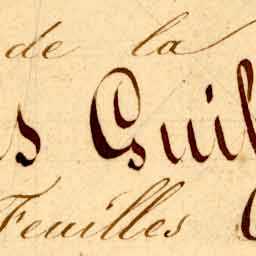 de la
s Guil
Feuilles